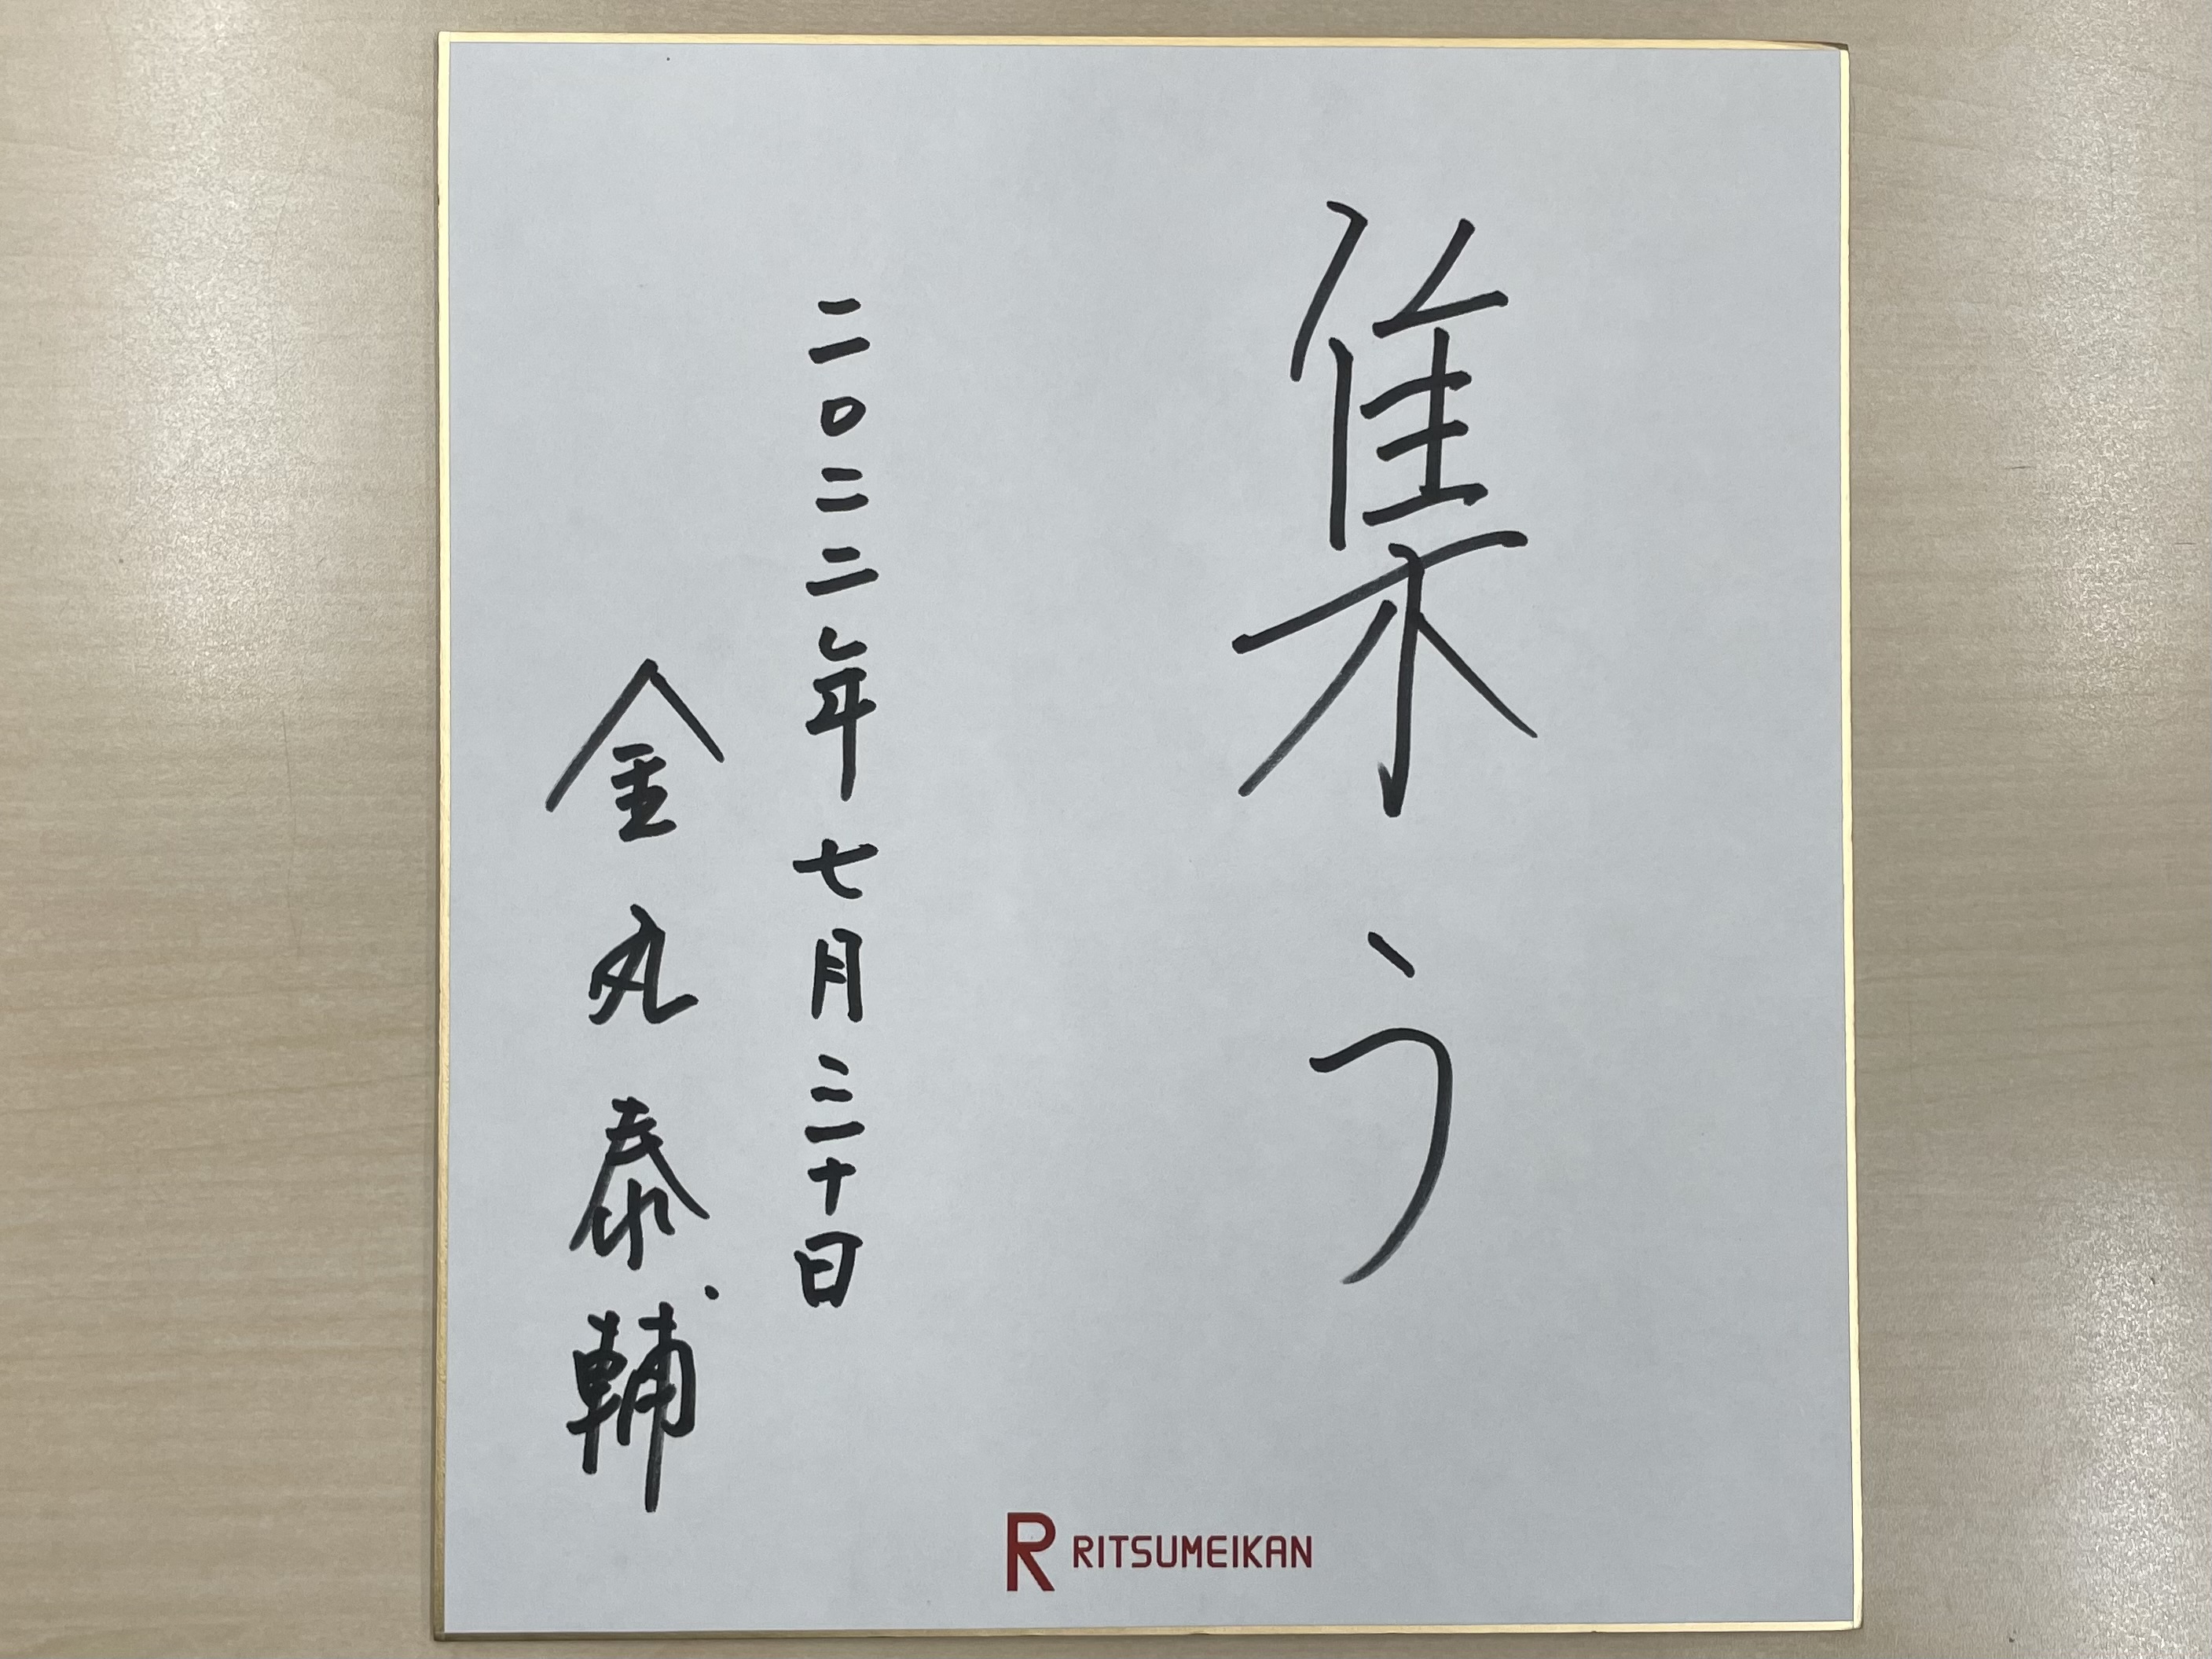 集う
二〇二二年七月三十日
金丸泰輔
R RITSUMEIKAN